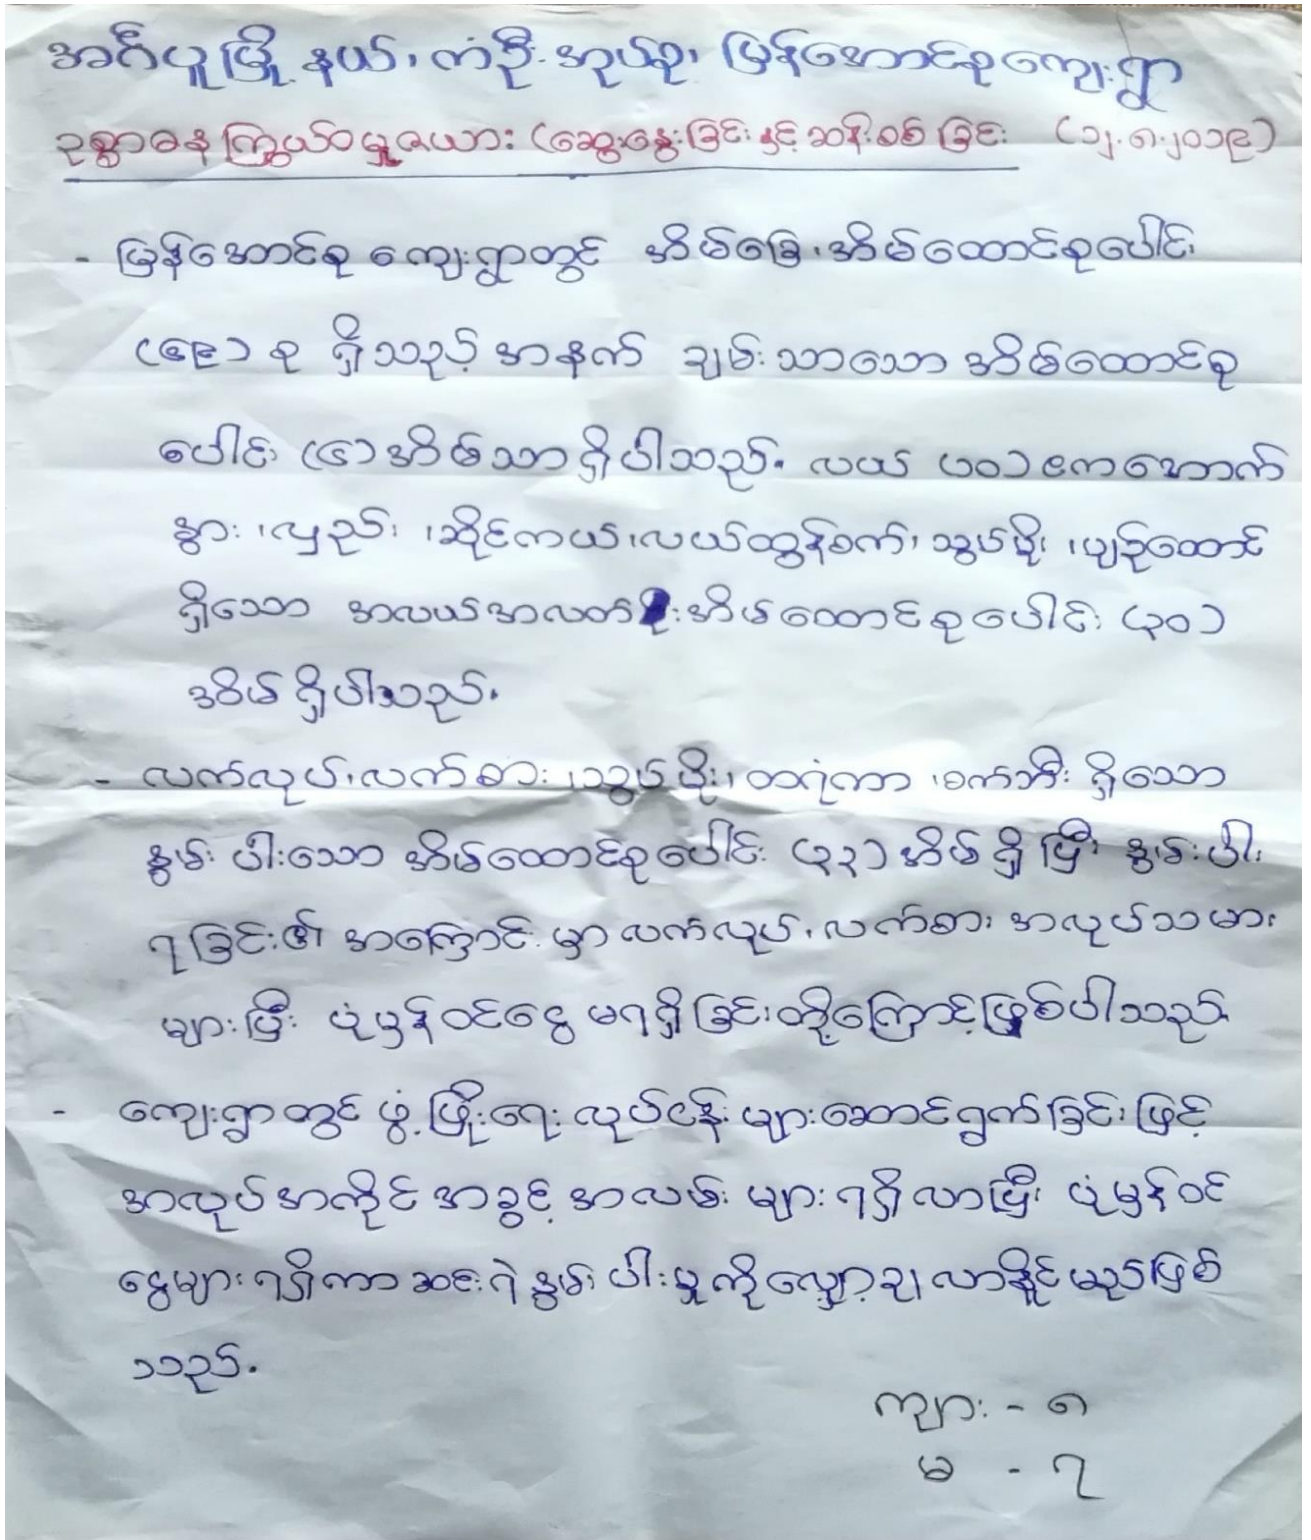 အင်္ဂပူမြို့နယ်၊ ကံဦးအုပ်စု၊ မြန်အောင်စုကျေးရွာ
ဥစ္စာဓနကြွယ်ဝမှုဇယား (ဆွေးနွေးခြင်းနှင့်ဆန်းစစ်ခြင်း (၁၂.၈.၂၀၁၉)
- မြန်အောင်စု ကျေးရွာတွင် အိမ်ခြေ၊ အိမ်ထောင်စုပေါင်း
(၉၉) စု ရှိသည့် အနက် ချမ်းသာသော အိမ်ထောင်စု
ပေါင်း (၆) အိမ်သာ ရှိပါသည်။ လယ် (၁၀) ဧကအောက်
နွား၊ လှည်း၊ ဆိုင်ကယ်၊ လယ်ထွန်စက်၊ သွပ်မိုး၊ ပျဉ်ထောင်
ရှိသော အလယ်အလတ် အိမ်ထောင်စုပေါင်း (၃၀)
အိမ် ရှိပါသည်။
- လက်လုပ်၊ လက်စား၊ သွပ်မိုး၊ ထရံကာ၊ စက်ဘီး ရှိသော
နွမ်းပါးသော အိမ်ထောင်စုပေါင်း (၃၃) အိမ် ရှိပြီး နွမ်းပါး
ရခြင်း၏ အကြောင်းမှာ လက်လုပ်၊ လက်စား အလုပ်သမား
များပြီး ပုံမှန်ဝင်ငွေ မရရှိခြင်းတို့ကြောင့်ဖြစ်ပါသည်
- ကျေးရွာတွင် ဖွံ့ဖြိုးရေး လုပ်ငန်းများဆောင်ရွက်ခြင်းဖြင့်
အလုပ်အကိုင် အခွင့်အလမ်းများ ရရှိလာပြီး ပုံမှန်ဝင်
ငွေများရရှိကာ ဆင်းရဲနွမ်းပါးမှုကိုလျှော့ချလာနိုင်မည်ဖြစ်
သည်။
ကျား - ၈
မ - ၇